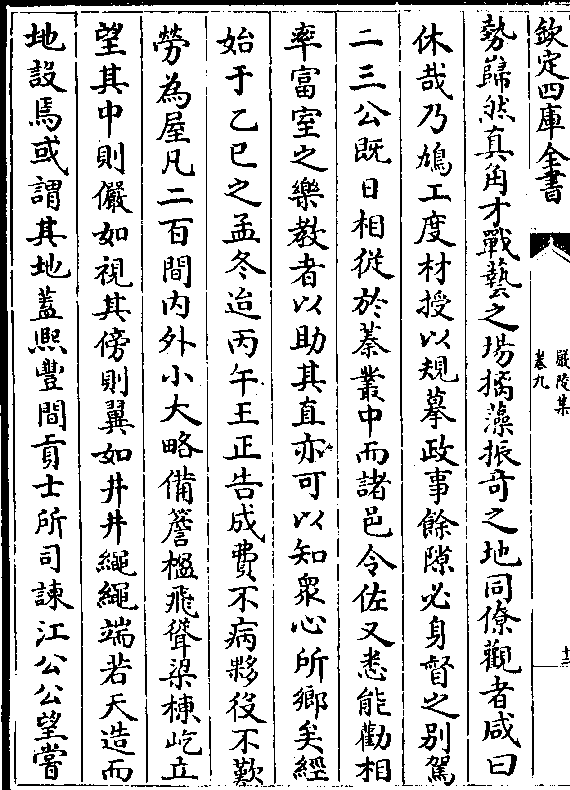 欽定四庫全書
嚴陵集
卷九
十二
勢巋然真角才戰藝之場摛藻振奇之地同僚觀者咸曰
休哉乃鳩工度材授以規摹政事餘隙必身督之别駕
二三公既日相從於蓁叢中而諸邑令佐又悉能勸相
率富室之樂教者以助其直亦可以知衆心所鄉矣經
始于乙巳之孟冬迨丙午王正告成費不病夥役不歎
勞為屋凡二百間内外小大略備簷楹飛聳梁棟屹立
望其中則儼如視其傍則翼如井井繩繩端若天造而
地設焉或謂其地蓋熙豐間貢士所司諫江公公望嘗